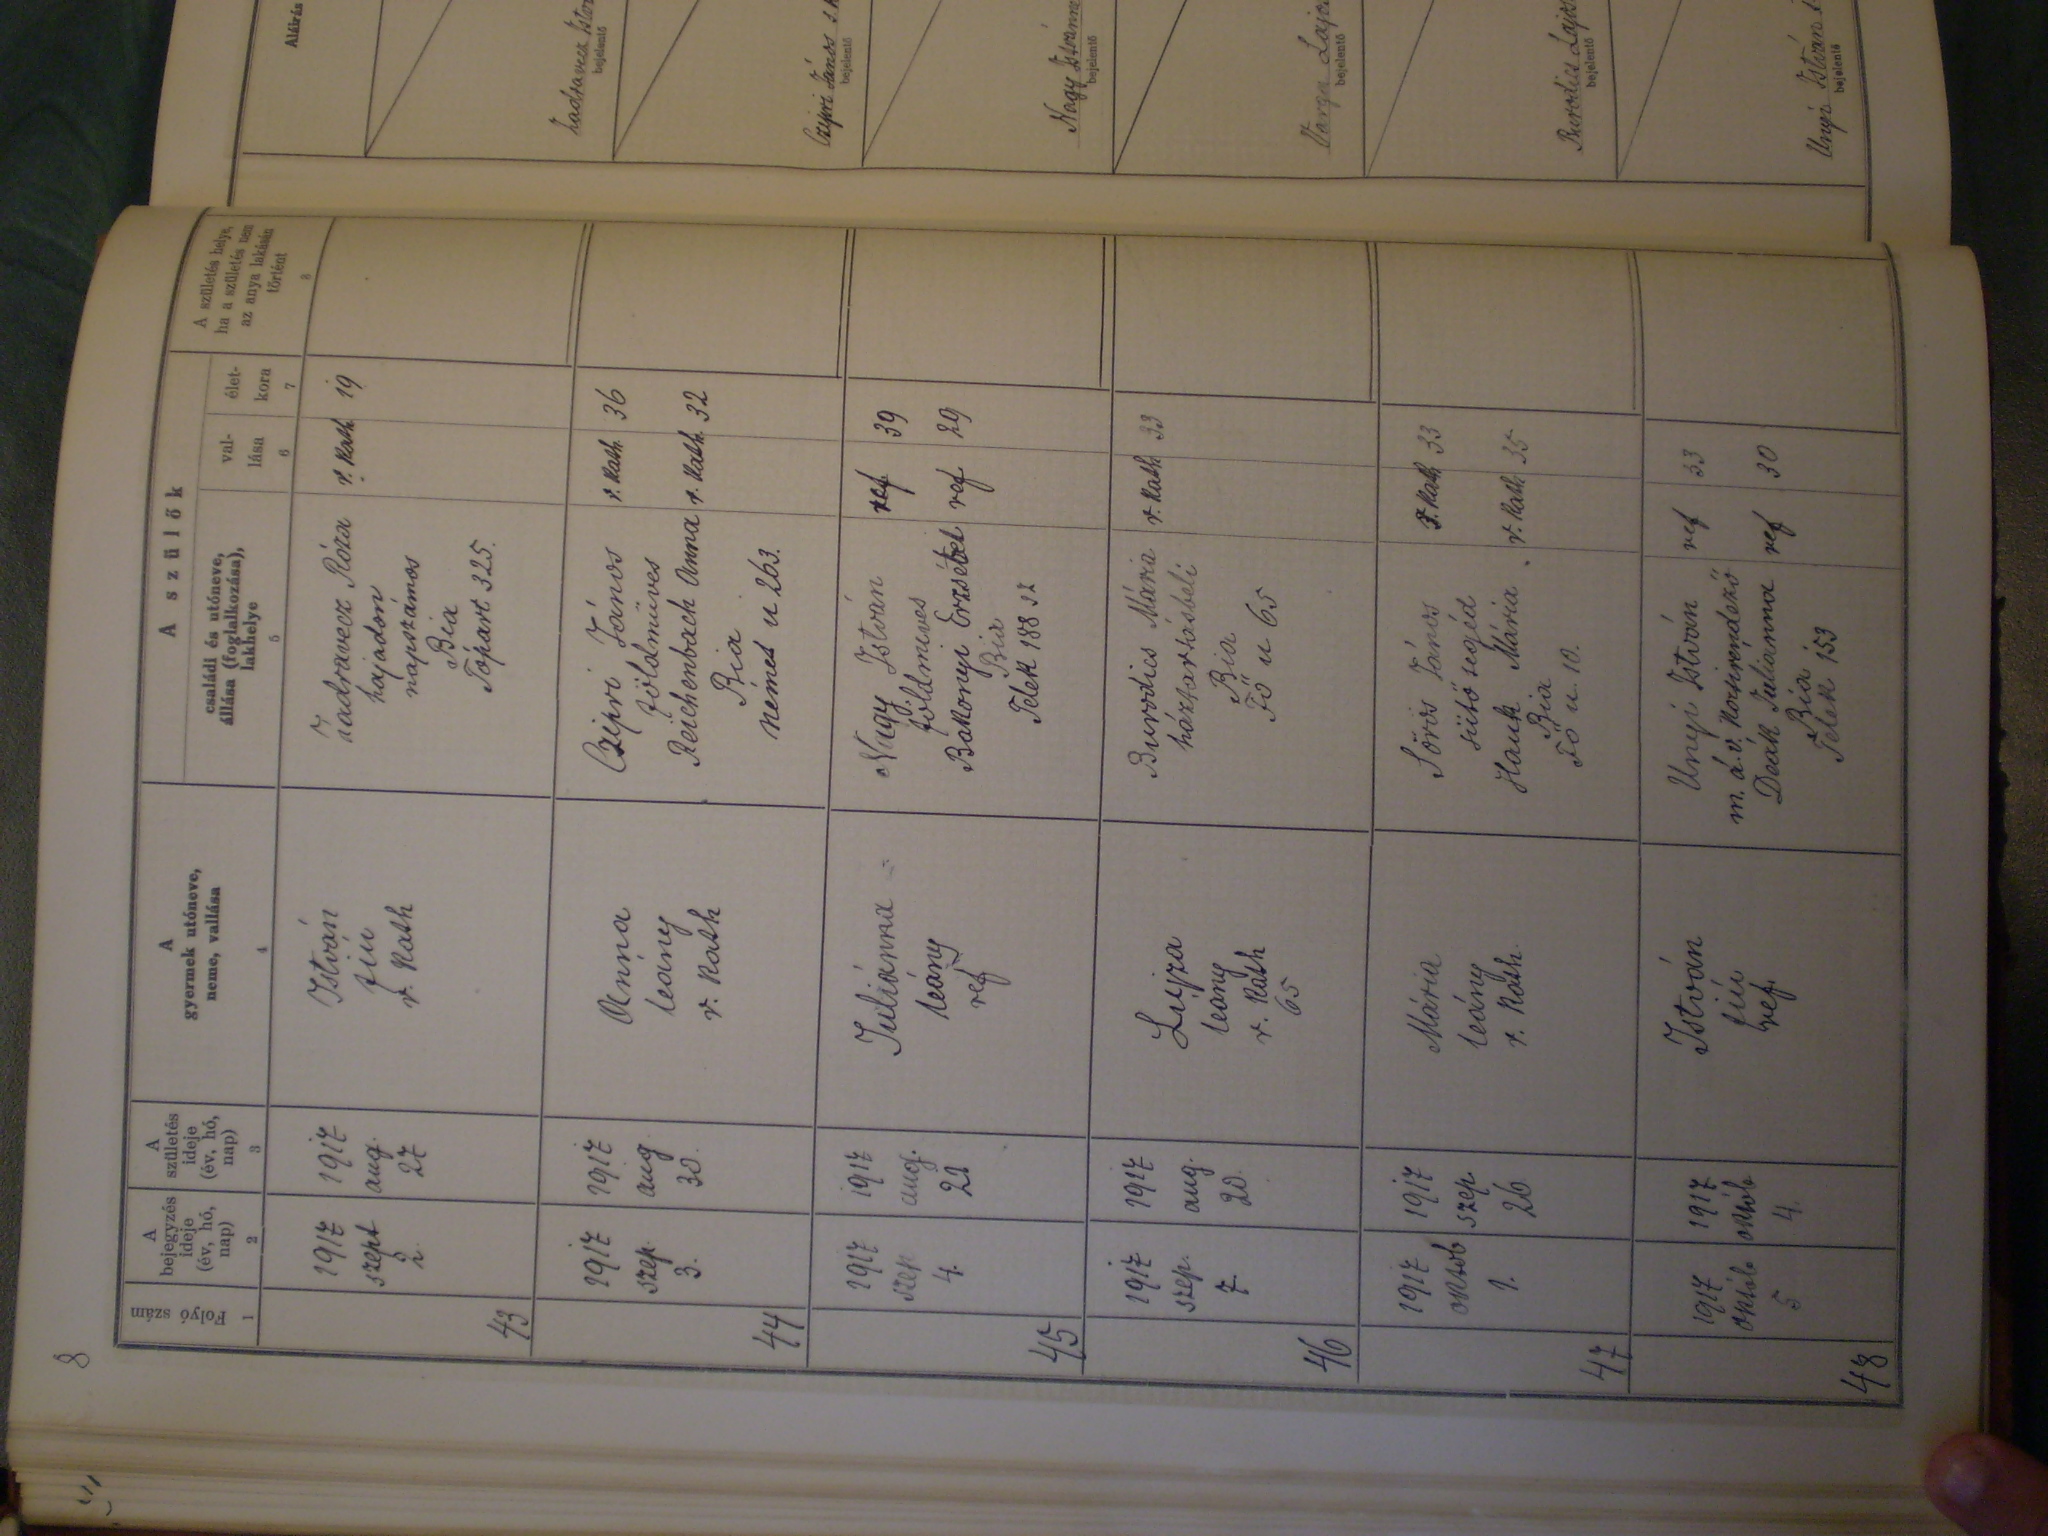 8
A szülők
Folyó szám
A bejegyzés ideje (év, hó, nap)
A születés ideje (év, hó, nap)
A gyermek utóneve, neme, vallása
családi és utóneve, állása (foglalkozása), lakhelye
val-
lása
élet-
kora
A születés helye, ha a születés nem az anya lakásán történt
Aláírás
1
2
3
4
5
6
7
8
43
1917
szept
2.
1917
aug.
27
István
fiu
r. Kath
Zadravecz Róza
hajadon
napszámos
Bia
Tópart 325.
r. Kath
19
bejelentő
44
1917
szep.
3.
1917
aug
30.
Anna
leány
r. Kath
Czipri János
földmüves
Reichenbach Anna
Bia
német u 263.
r. Kath 36
r. Kath 32
Czipri János s.k
bejelentő
45
1917
szep
4.
1917
aug.
Juliánna
leány
ref
Nagy István
földmives
Bakonyi Erzsébet
Bia
Telek 188
ref 39
ref 29
Nagy Istvánné
bejelentő
46
1917
szep.
7.
1917
aug.
20.
Lujza
leány
r. Kath
65
Burodics Mária
háztartásbeli
Bia
Fő u 65
r. Kath 33
Varga Lajos
bejelentő
47
1917
oktob
1.
1917
szep.
26
Mária
leány
r. Kath.
Sőrös János
sütő segéd
Hauk Mária
Bia
Fő u. 10.
r. Kath 33
r. Kath 35
Burodics Lajos
bejelentő
48
1917
októb
5
1917
októb
4.
István
fiú
ref.
Unyi István
m. á. v. kocsirendező
Deák Julianna
Bia
Telek 153
ref 33
ref 30
Unyi István
bejelentő